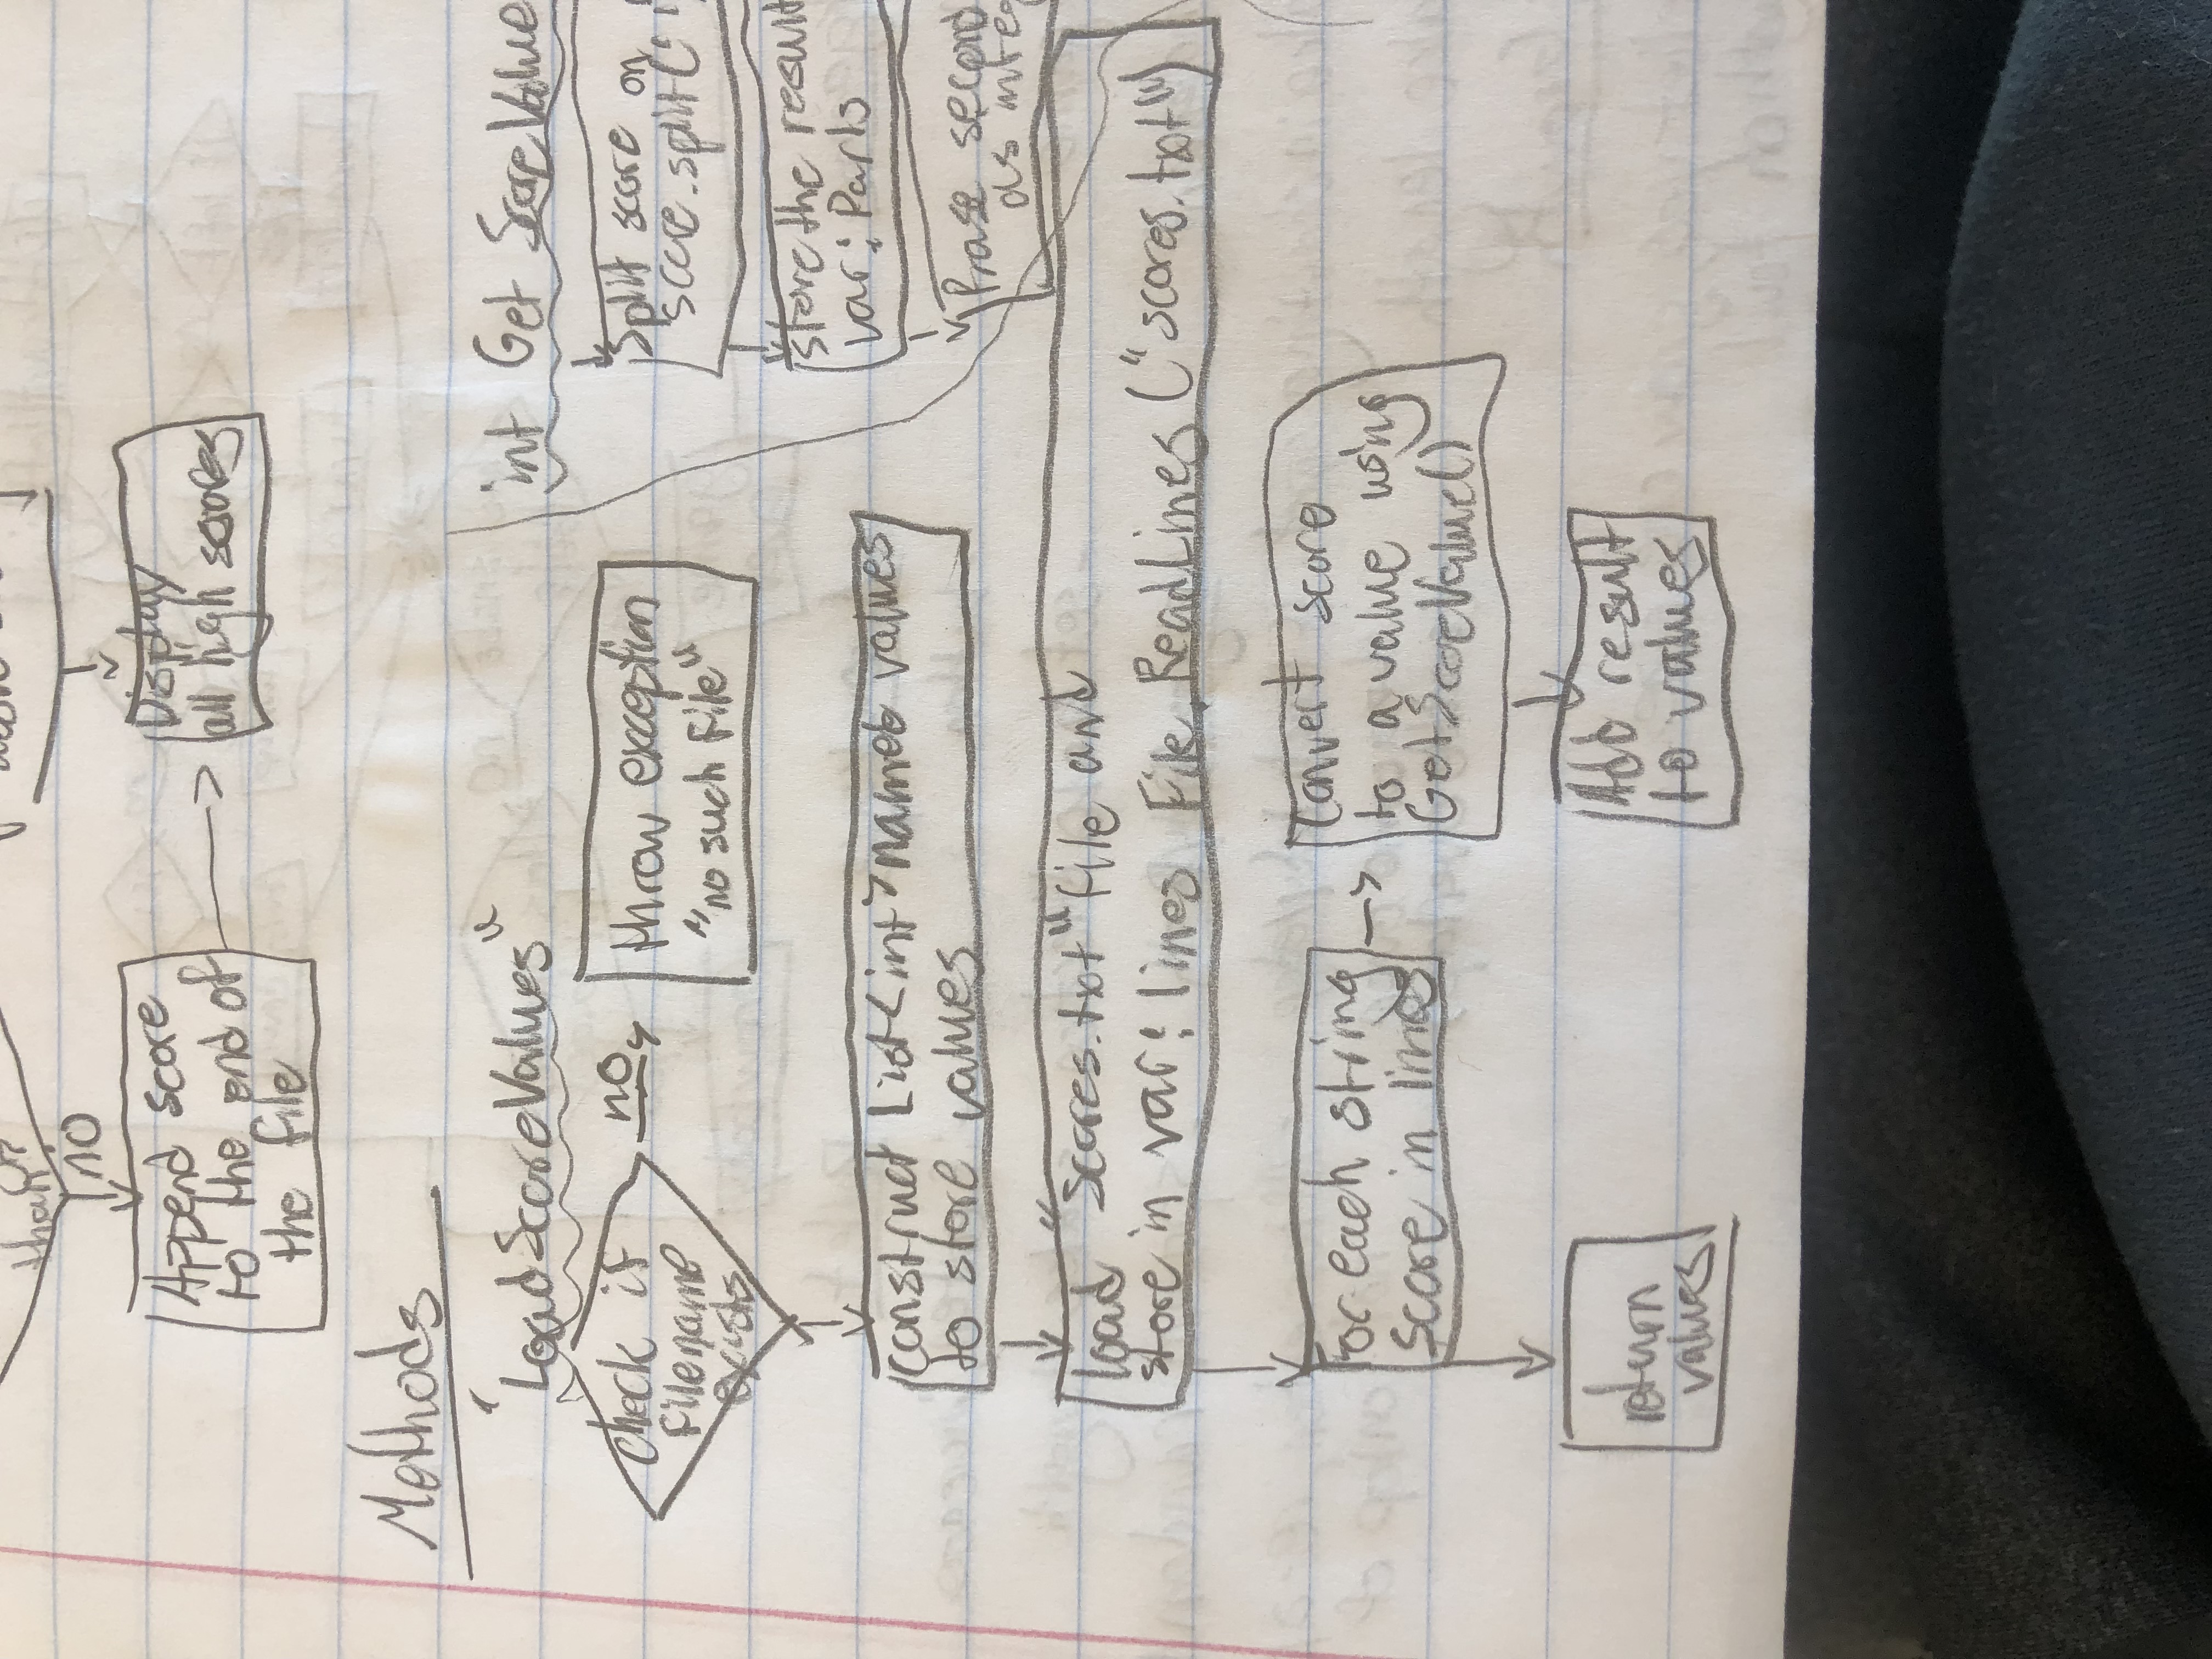 than?
no
Append score
to the end of
the file
Display
all high scores
Methods
"LoadScoreValues"
check if
filename
exists
no
throw exception
"no such file"
construct List<int> named values
to store values
load "Scores.txt" file and
store in var: lines File.ReadLines ("scores.txt")
For each string
score in lines
Convert score
to a value using
GetScoreValue()
Add result
to values
return
values
int Get ScoreValue
Split score on
score.split('
store the result
var: Parts
Prase second
as integ